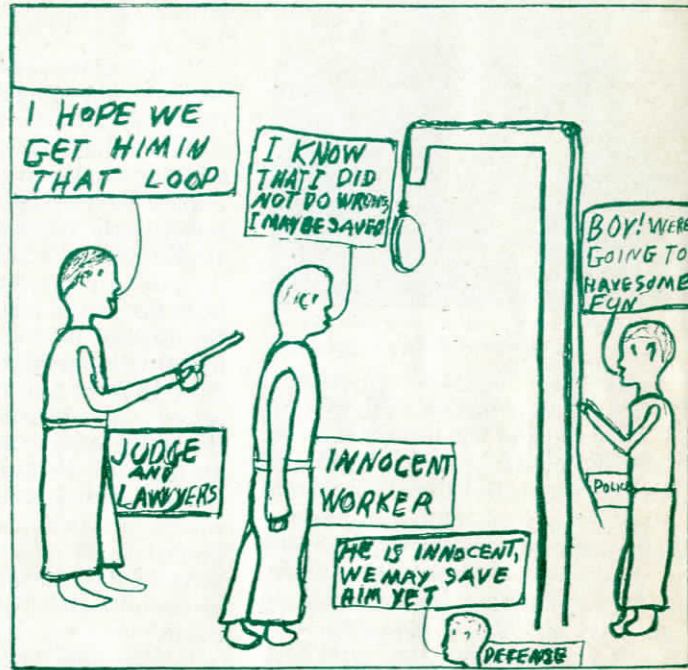 I HOPE WE
GET HIMIN
THAT LOOP
I KNOW
THAT I DID
NOT DO WRONG,
I MAY BE SAVED
BOY! WERE
GOING TO
HAVE SOME
FUN
JUDGE
AND
LAWYERS
INNOCENT
WORKER
POLICE
HE IS INNOCENT,
WE MAY SAVE
HIM YET
DEFENSE